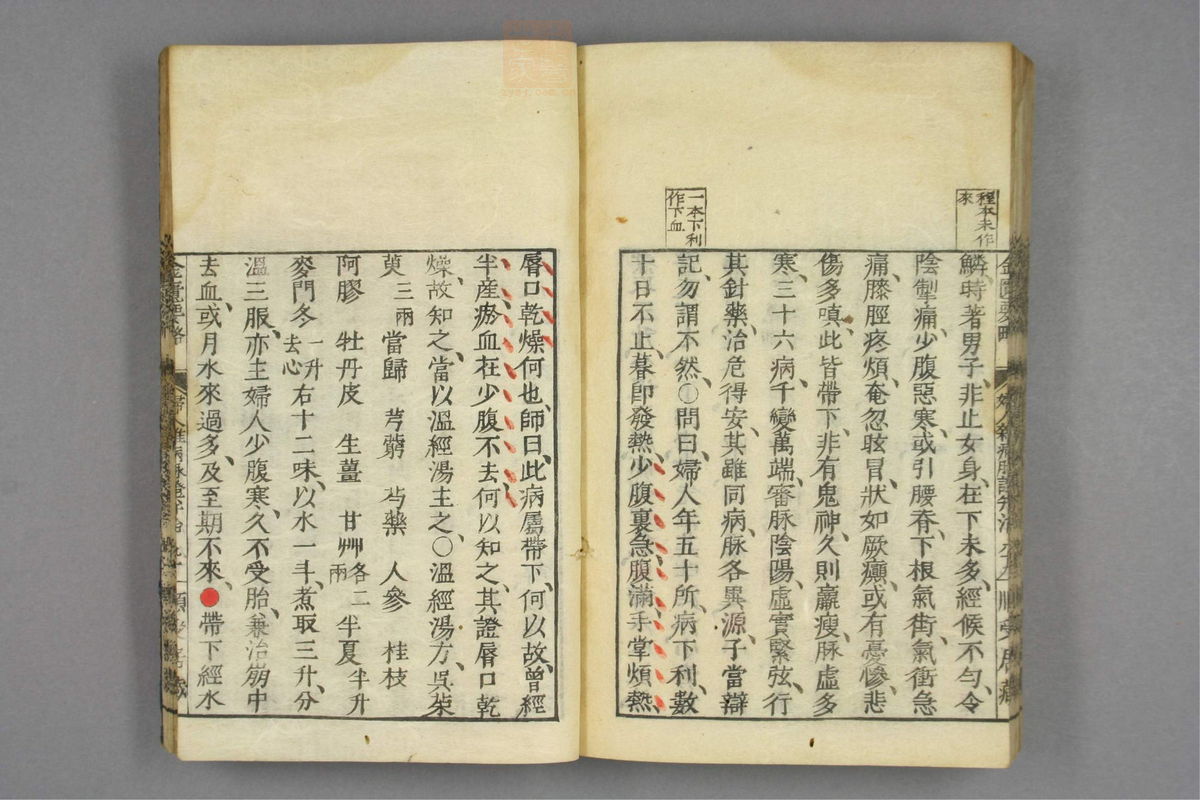 程本未作
來
一本下利
作下血
鱗時著男子非止女身在下未多經候不勻令
陰掣痛少腹惡寒或引腰脊下根氣街氣衝急
痛膝脛疼煩奄忽眩冒狀如厥癲或有憂慘悲
傷多嗔此皆帶下非有鬼神久則羸瘦脉虛多
寒三十六病千變萬端審脉陰陽虛實緊弦行
其針藥治危得安其雖同病脉各異源子當辯
記勿謂不然○問曰婦人年五十所病下利數
十日不止暮即發熱少腹裏急腹滿手掌煩熱
脣口乾燥何也師曰此病屬帶下何以故曾經
半產瘀血在少腹不去何以知之其證脣口乾
燥故知之當以溫經湯主之○溫經湯方吳茱
萸三兩 當歸 芎藭 芍藥 人參 桂枝
阿膠 牡丹皮 生薑 甘艸各二兩 半夏半升
麥門冬一升去心 右十二味以水一斗煮取三升分
溫三服亦主婦人少腹寒久不受胎兼治崩中
去血或月水來過多及至期不來●帶下經水
金匱要略